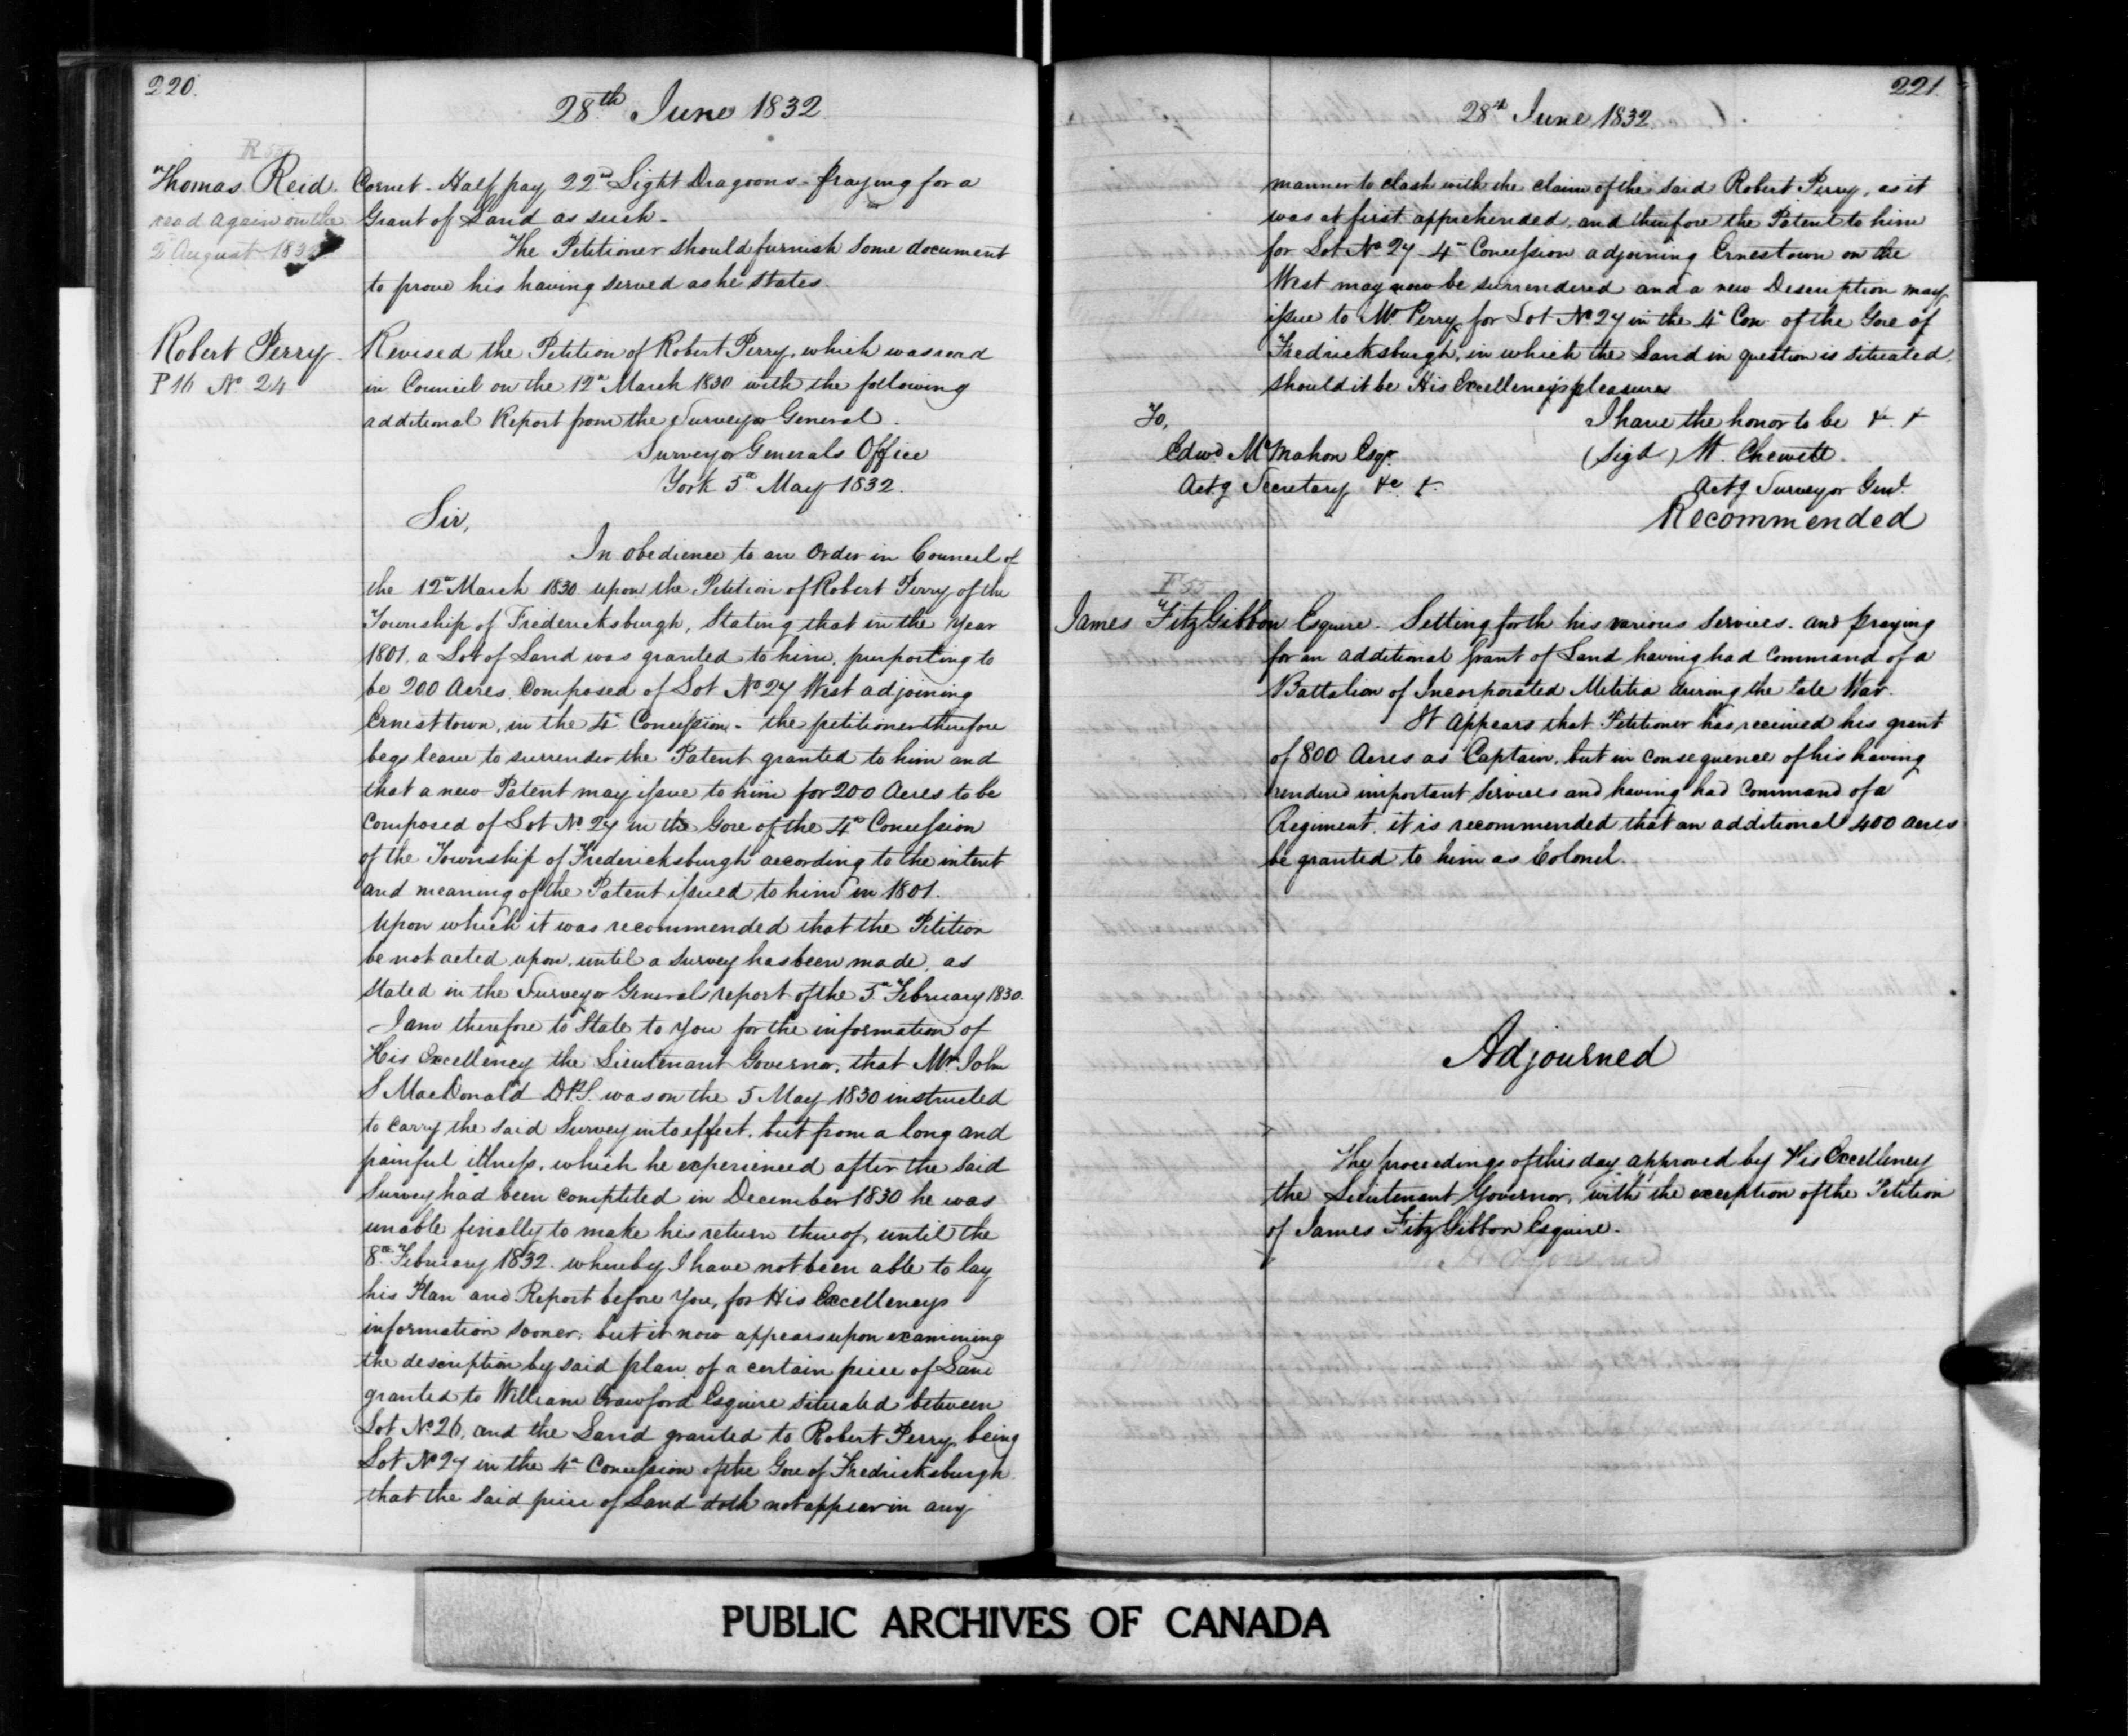 220.
28th June 1832
R 55
Thomas Reid.
read again on the
2 August 183
Cornet - Half pay 22d Light Dragoons - praying for a
Grant of Land as such -
The Petitioner should furnish some document
to prove his having served as he states.
Robert Perry
P 16 No 24
Revised the Petition of Robert Perry, which was read
in Council on the 12th March 1830 with the following
additional Report from the Surveyor General.
Surveyor Generals Office
York 5th May 1832.
Sir,
In obedience to an Order in Council of
the 12th March 1830 upon the Petition of Robert Perry of the
Township of Fredericksburgh, Stating that in the Year
1801, a Lot of Land was granted to him, purporting to
be 200 Acres, Composed of Lot No 27 West adjoining
Ernesttown, in the 4th Concession - the petitioner therefore
begs leave to surrender the Patent granted to him and
that a new Patent may issue to him for 200 Acres to be
composed of Lot No 27 in the Gore of the 4th Concession
of the Township of Fredericksburgh according to the intent
and meaning of the Patent issued to him in 1801.
Upon which it was recommended that the Petition
be not acted upon, until a survey has been made, as
stated in the Surveyor Generals report of the 5th February 1830.
I am therefore to State to you for the information of
His Excellency the Lieutenant Governor, that Mr John
S MacDonald D.P.S. was on the 5 May 1830 instructed
to carry the said Survey into effect, but from a long and
painful illness, which he experienced after the said
Survey had been completed in December 1830 he was
unable finally to make his return thereof, until the
8th February 1832. whereby I have not been able to lay
his Plan and Report before you, for His Excellencys
information sooner; but it now appears upon examining
the description by said plan of a certain piece of Land
granted to William Crawford Esquire situated between
Lot No 26, and the Land granted to Robert Perry, being
Lot No 27 in the 4th Concession of the Gore of Fredricksburgh
that the said piece of Land doth not appear in any
221.
28th June 1832
manner to clash with the claim of the said Robert Perry, as it
was at first apprehended, and therefore the Patent to him
for Lot No 27 - 4th Concession adjoining Ernestown on the
West may now be surrendered and a new Description may
issue to Mr Perry for Lot No 27 in the 4th Con. of the Gore of
Fredricksburgh, in which the Land in question is situated,
should it be His Excellency's pleasure
I have the honor to be &c &
To,
Edwd McMahon Esqr.
(Sigd) W. Chewett.
Actg Secretary &c &.
Actg Surveyor Genl.
Recommended
F 55
James FitzGibbon Esquire. Setting forth his various Services. and praying
for an additional grant of Land having had Command of a
Battalion of Incorporated Militia during the late War.
It appears that Petitioner has received his grant
of 800 Acres as Captain, but in consequence of his having
rendered important Services and having had Command of a
Regiment, it is recommended that an additional 400 acres
be granted to him as Colonel.
Adjourned
The proceedings of this day approved by His Excellency
the Lieutenant Governor, with the exception of the Petition
of James FitzGibbon Esquire.
PUBLIC ARCHIVES OF CANADA